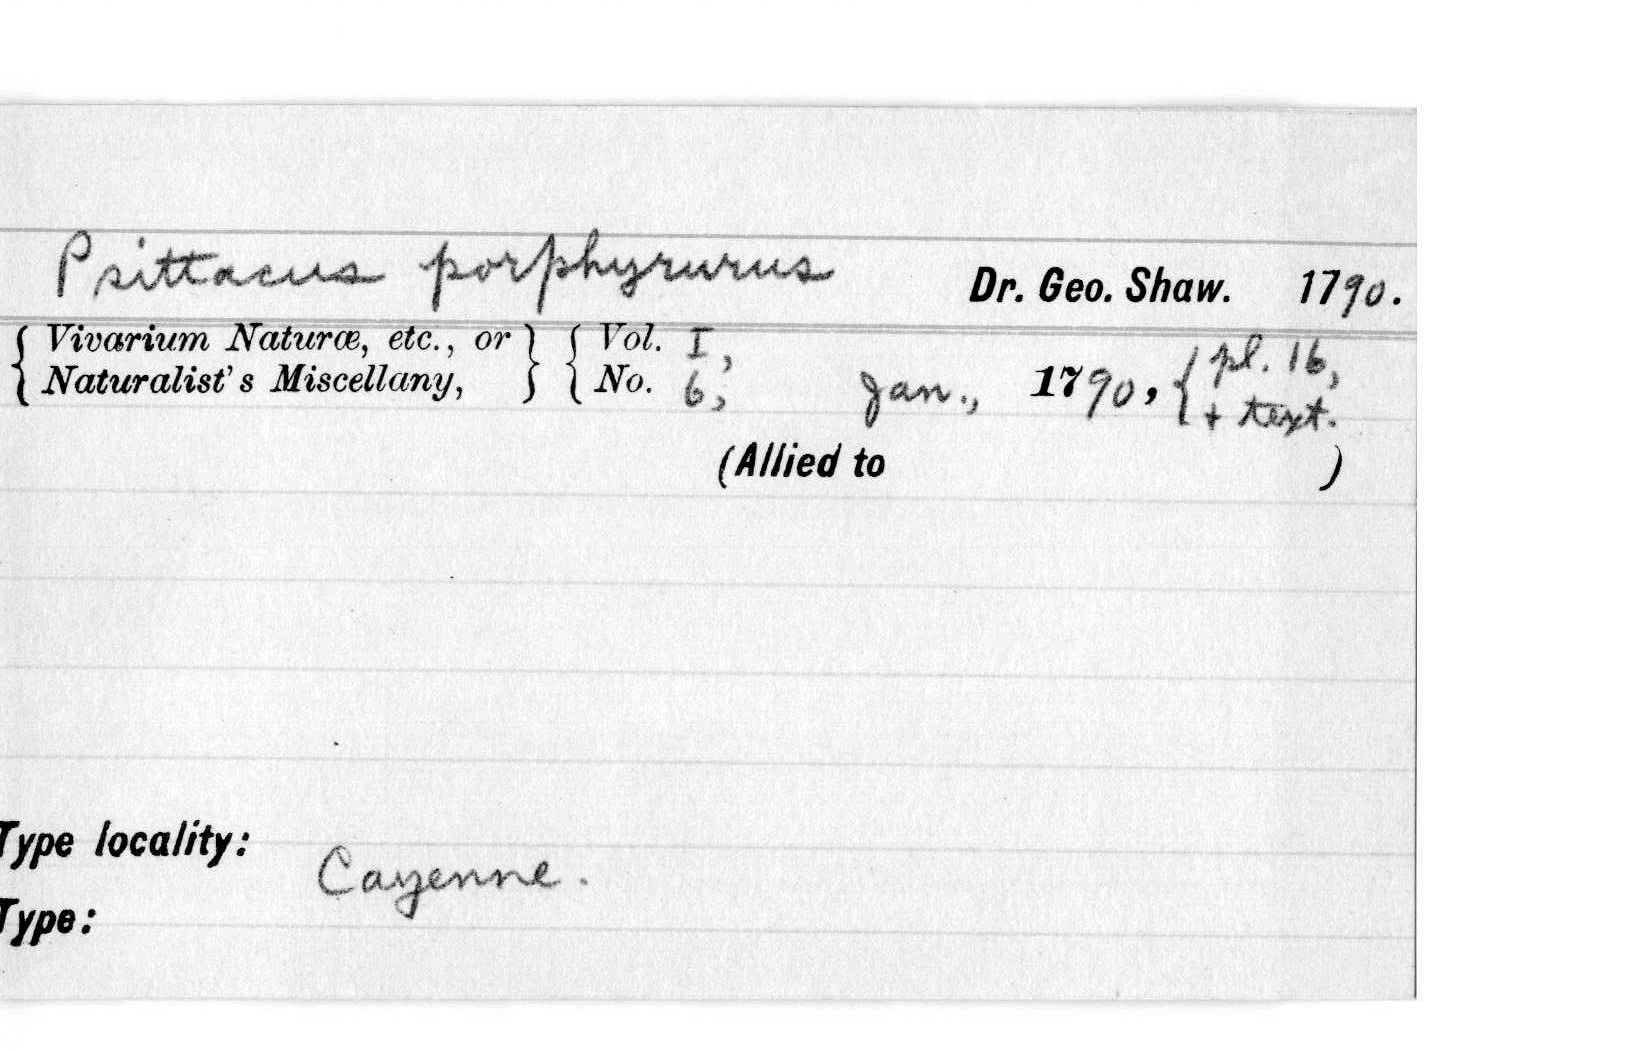 Psittacus porphyrurus Dr. Geo. Shaw. 1790.
{ Vivarium Naturæ, etc., or } { Vol. I, pl. 16,
{ Naturalist's Miscellany, } { No. 6; Jan., 1790, { + text.
(Allied to )
Type locality: Cayenne.
Type: